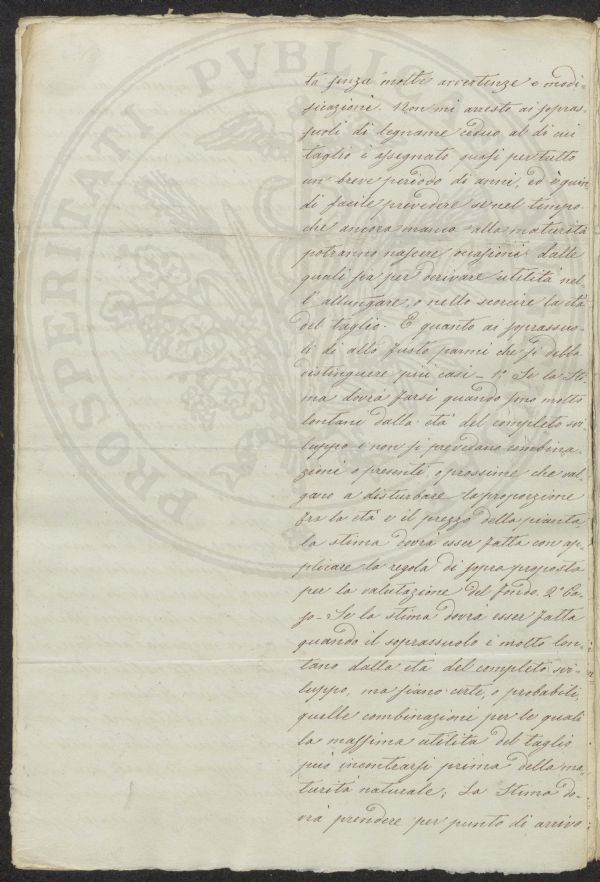 PROSPERITATI PVBLIC
tà senza molte avvertenze e modi-
ficazioni. Non mi arresto ai sopras-
suoli di legname ceduo al di cui
taglio è assegnato quasi per tutto
un breve periodo di anni, ed è quin
di facile prevedere se nel tempo
che ancora manca alla maturità
potranno nascere occasioni dalle
quali sia per derivare utilità nel
l'allungare, o nello scorcire la età
del taglio. E quanto ai soprassuo-
li di alto fusto parmi che si debba
distinguere più casi - 1.° Se la Sti
ma dovrà farsi quando sono molto
lontani dalla età del completo svi
luppo e non si prevedano combina
zioni o presenti, o prossime che val-
gano a disturbare la proporzione
fra la età e il prezzo della pianta
la stima dovrà esser fatta con ap-
plicare la regola di sopra proposta
per la valutazione del fondo. 2.° Ca-
so - Se la stima dovrà esser fatta
quando il soprassuolo è molto lon-
tano dalla età del completo svi-
luppo, ma siano certe, o probabili
quelle combinazioni per le quali
la massima utilità del taglio
può incontrarsi prima della ma-
turità naturale; La Stima do-
vrà prendere per punto di arrivo